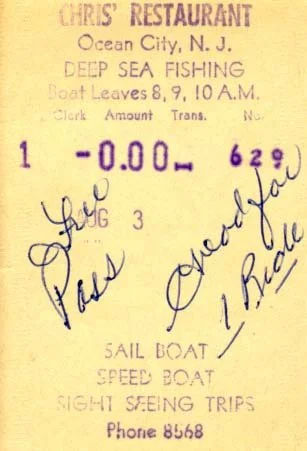 CHRIS' RESTAURANT
Ocean City, N. J.
DEEP SEA FISHING
Boat Leaves 8, 9, 10 A.M.
Clerk Amount Trans. No.
1 -0.00- 629
AUG 3
Free
Pass
Good for
1 Ride
SAIL BOAT
SPEED BOAT
SIGHT SEEING TRIPS
Phone 8568